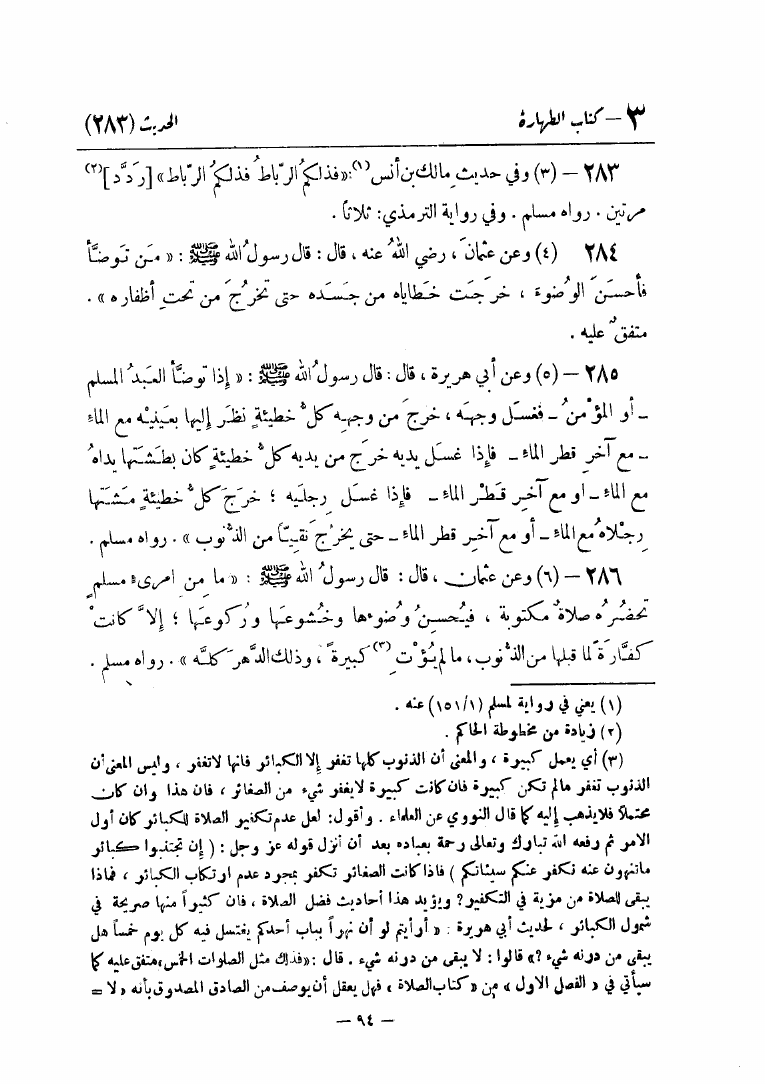 ٣ – كتاب الطهارة الحديث (٢٨٣)
٢٨٣ – (٣) وفي حديث مالك بن أنس (١): «فذلكمُ الرّباطُ فذلكمُ الرّباط» [رَدَّد] (٢)
مرتين . رواه مسلم . وفي رواية الترمذي: ثلاثاً .
٢٨٤ (٤) وعن عثمانَ ، رضي اللهُ عنه ، قال : قال رسولُ الله ﷺ : « مَن تَوضَّأ
فأحسَنَ الوُضوءَ ، خرَجَت خطاياه من جَسَده حتى تخرُجَ من تحتِ أظفاره » .
متفقٌ عليه .
٢٨٥ – (٥) وعن أبي هريرة ، قال : قال رسولُ الله ﷺ : « إذا توضَّأ العَبدُ المسلم
ـ أو المؤمنُ ـ فغسَل وجهَه ، خرجَ من وجهِه كلُّ خطيئةٍ نظَر إليها بعَينَيْه مع الماء
ـ مع آخرِ قطر الماء ـ فإذا غسَل يديه خرَجَ من يديه كلُّ خطيئةٍ كان بَطَشَتها يداهُ
مع الماء ـ او مع آخرِ قَطْر الماء ـ فإذا غسَل رِجلَيه ؛ خرَجَ كلُّ خطيئةٍ مَشَتها
رِجْلاهُ مع الماء ـ أو مع آخرِ قطر الماء ـ حتى يخرُجَ نَقيّاً من الذُّنوب » . رواه مسلم .
٢٨٦ – (٦) وعن عثمان ، قال : قال رسولُ الله ﷺ : « ما مِن امرىءٍ مسلمٍ
تحضُرُه صلاةٌ مكتوبة ، فيُحسِنُ وُضوءَها وخُشوعَها ورُكوعَها ؛ إلاَّ كانتْ
كفَّارَةً لما قبلها من الذُّنوب، ما لم يُؤْتِ (٣) كبيرةً ، وذلك الدَّهرَ كلَّه » . رواه مسلم .
(١) يعني في رواية لمسلم (١/١٥١) عنه .
(٢) زيادة من مخطوطة الحاكم .
(٣) أي يعمل كبيرة ، والمعنى أن الذنوب كلها تغفر إلا الكبائر فانها لاتغفر ، وليس المعنى أن
الذنوب تغفر مالم تكن كبيرة فان كانت كبيرة لايغفر شيء من الصغائر ، فان هذا وان كان
محتملاً فلايذهب إليه كما قال النووي عن العلماء . وأقول: لعل عدم تكفير الصلاة للكبائر كان أول
الامر ثم رفعه الله تبارك وتعالى رحمة بعباده بعد أن أنزل قوله عز وجل : ( إن تجتنبوا كبائر
ماتنهون عنه نكفر عنكم سيئاتكم ) فاذا كانت الصغائر تكفر بمجرد عدم ارتكاب الكبائر ، فماذا
يبقى للصلاة من مزية في التكفير؟ ويؤيد هذا أحاديث فضل الصلاة ، فان كثيراً منها صريحة في
شمول الكبائر ، لحديث أبي هريرة : « أرأيتم لو أن نهراً بباب أحدكم يغتسل فيه كل يوم خمساً هل
يبقى من درنه شيء ؟» قالوا : لا يبقى من درنه شيء . قال : «فذلك مثل الصلوات الخمس» متفق عليه كما
سيأتي في « الفصل الاول » من « كتاب الصلاة ، فهل يعقل أن يوصف من الصادق المصدوق بأنه « لا =
– ٩٤ –